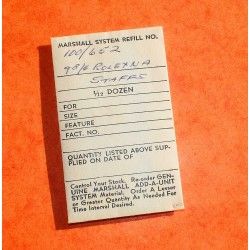 MARSHALL SYSTEM REFILL NO.
100/652
98/6 ROLEX NA
STAFFS
1/12 DOZEN
FOR
SIZE
FEATURE
FACT. NO.
QUANTITY LISTED ABOVE SUP-
PLIED ON DATE OF
Control Your Stock. Re-order GEN-
UINE MARSHALL ADD-A-UNIT
SYSTEM Material. Order A Lesser
or Greater Quantity As Needed For
Time Interval Desired.